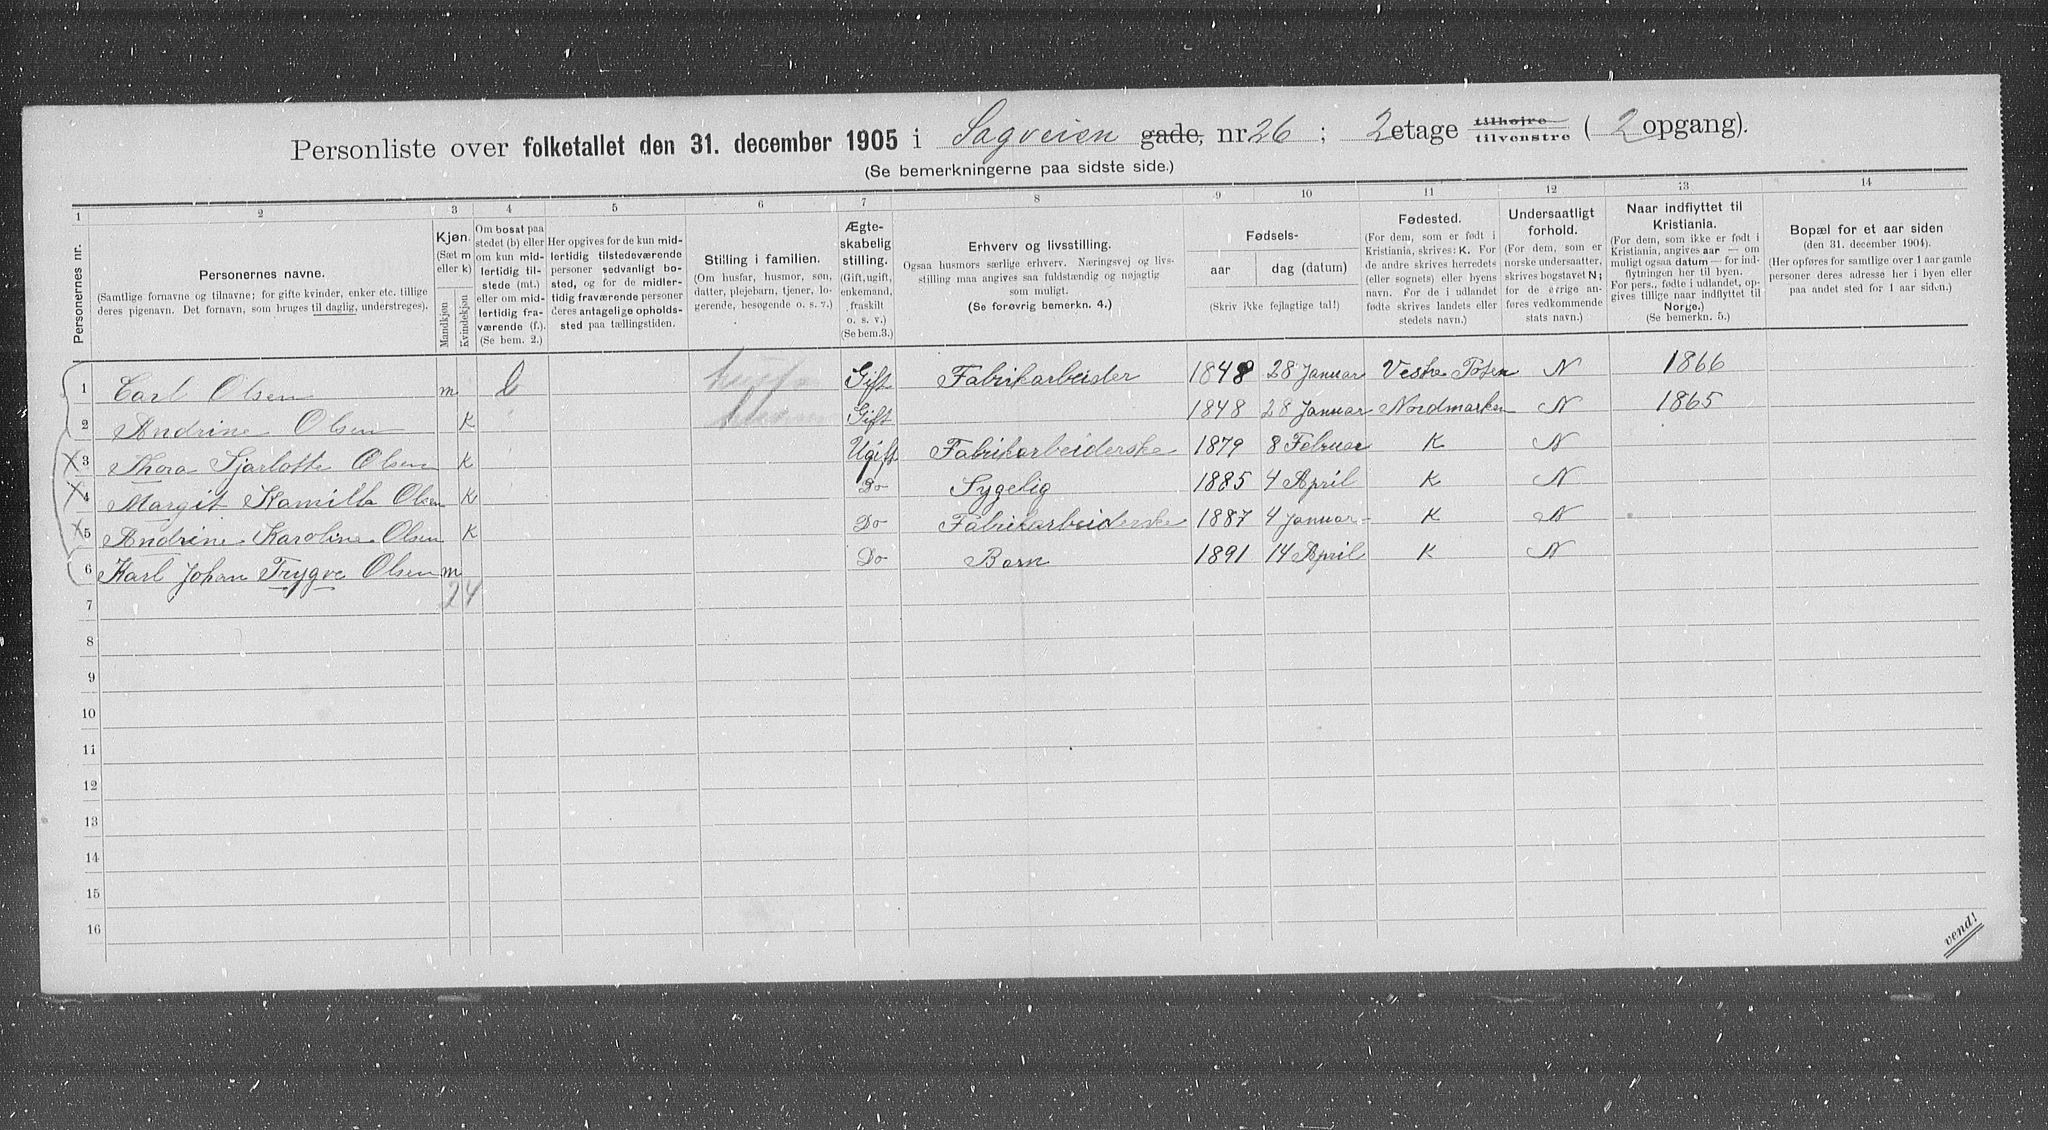 Personliste over folketallet den 31. december 1905 i Sagveien gade, nr 26 ; 2 etage tilhøire tilvenstre ( 2 opgang).
(Se bemerkningerne paa sidste side.)
1 2 3 4 5 6 7 8 9 10 11 12 13 14
Personernes nr.
Personernes navne.
(Samtlige fornavne og tilnavne; for gifte kvinder, enker etc. tillige
deres pigenavn. Det fornavn, som bruges til daglig, understreges).
Kjøn.
(Sæt m
eller k)
Mandkjøn
Kvindekjøn
Om bosat paa
stedet (b) eller
om kun mid-
lertidig til-
stede (mt.)
eller om mid-
lertidig fra-
værende (f.).
(Se bem. 2.)
Her opgives for de kun mid-
lertidig tilstedeværende
personer sedvanligt bo-
sted, og for de midler-
tidig fraværende personer
deres antagelige opholds-
sted paa tællingstiden.
Stilling i familien.
(Om husfar, husmor, søn,
datter, plejebarn, tjener, lo-
gerende, besøgende o. s. v.)
Ægte-
skabelig
stilling.
(Gift, ugift,
enkemand,
fraskilt
o. s. v.)
(Se bem.3.)
Erhverv og livsstilling.
Ogsaa husmors særlige erhverv. Næringsvej og livs-
stilling maa angives saa fuldstændig og nøjagtig
som muligt.
(Se forøvrig bemerkn. 4.)
Fødsels-
aar dag (datum)
(Skriv ikke fejlagtige tal!)
Fødested.
(For dem, som er født i
Kristiania, skrives: K. For
de andre skrives herredets
(eller sognets) eller byens
navn. For de i udlandet
fødte skrives landets eller
stedets navn.)
Undersaatligt
forhold.
(For dem, som er
norske undersaatter,
skrives bogstavet N;
for de øvrige an-
føres vedkommende
stats navn.)
Naar indflyttet til
Kristiania.
(For dem, som ikke er født i
Kristiania, angives aar — om
muligt ogsaa datum — for ind-
flytningen her til byen.
For pers., fødte i udlandet, op-
gives tillige naar indflyttet til
Norge.)
(Se bemerkn. 5.)
Bopæl for et aar siden
(den 31. december 1904).
(Her opføres for samtlige over 1 aar gamle
personer deres adresse her i byen eller
paa andet sted for 1 aar siden.)
1 Carl Olsen m b Gift Fabrikarbeider 1848 28 Januar Vestre Toten N 1866
2 Andrine Olsen K Gift 1848 28 Januar Nordmarken N 1865
X 3 Thora Sjarlotte Olsen K Ugift Fabrikarbeiderske 1879 8 Februar K N
X 4 Margit Kamilla Olsen K Do Sygelig 1885 4 April K N
X 5 Andrine Karoline Olsen K Do Fabrikarbeiderske 1887 4 Januar K N
6 Karl Johan Trygve Olsen m Do Barn 1891 14 April K N
7 24
8
9
10
11
12
13
14
15
16
vend!